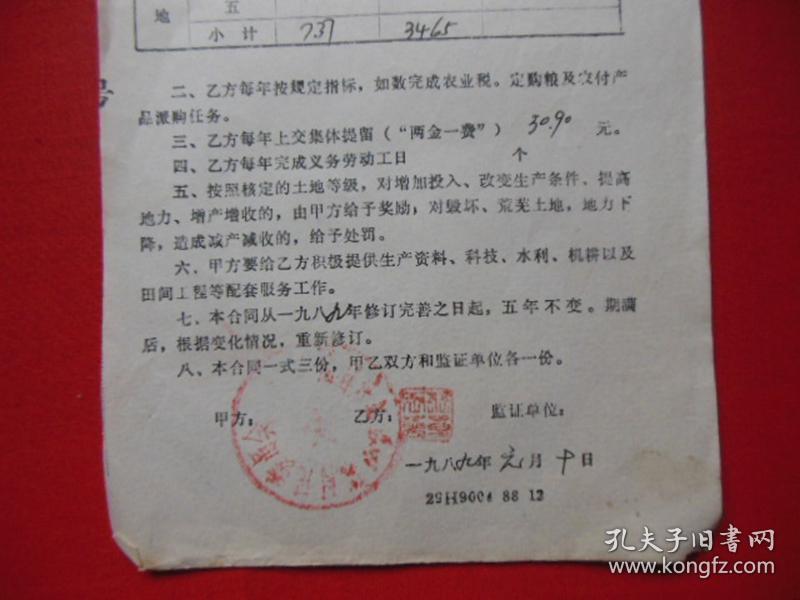 地 五
小计 737 3465
号
二、乙方每年按规定指标，如数完成农业税。定购粮及交付产
品派购任务。
三、乙方每年上交集体提留（“两金一费”） 30.90 元。
四、乙方每年完成义务劳动工日 个
五、按照核定的土地等级，对增加投入、改变生产条件、提高
地力、增产增收的，由甲方给予奖励，对毁坏、荒芜土地，地力下
降，造成减产减收的，给予处罚。
六、甲方要给乙方积极提供生产资料、科技、水利、机耕以及
田间工程等配套服务工作。
七、本合同从一九八九年修订完善之日起，五年不变。期满
后，根据变化情况，重新修订。
八、本合同一式三份，甲乙双方和监证单位各一份。
甲方： 乙方： 监证单位：
一九八九年元月十日
29H9004 88 12
孔夫子旧书网
www.kongfz.com